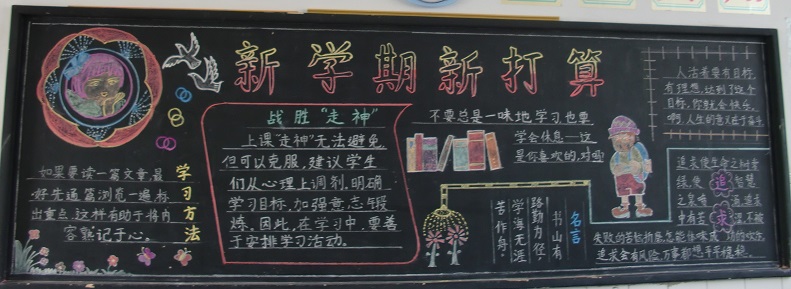 新学期新打算
学习方法
如果要读一篇文章,最
好先通篇浏览一遍,标
出重点,这样有助于将内
容熟记于心。
战胜“走神”
上课“走神”无法避免,
但可以克服,建议学生
们从心理上调剂,明确
学习目标,加强意志锻
炼,因此,在学习中,要善
于安排学习活动。
不要总是一味地学习,也要
学会休息——这
是你喜欢的,对吗
名言
书山有
路勤为径,
学海无涯
苦作舟。
人活着要有目标,
有理想,达到了这个
目标,你就会快乐。
啊,人生的意义在于奋斗
追求
追求使生命之树常
绿,使智慧
之泉喷涌
失败的苦
追求会有风险,万事都想平平稳稳